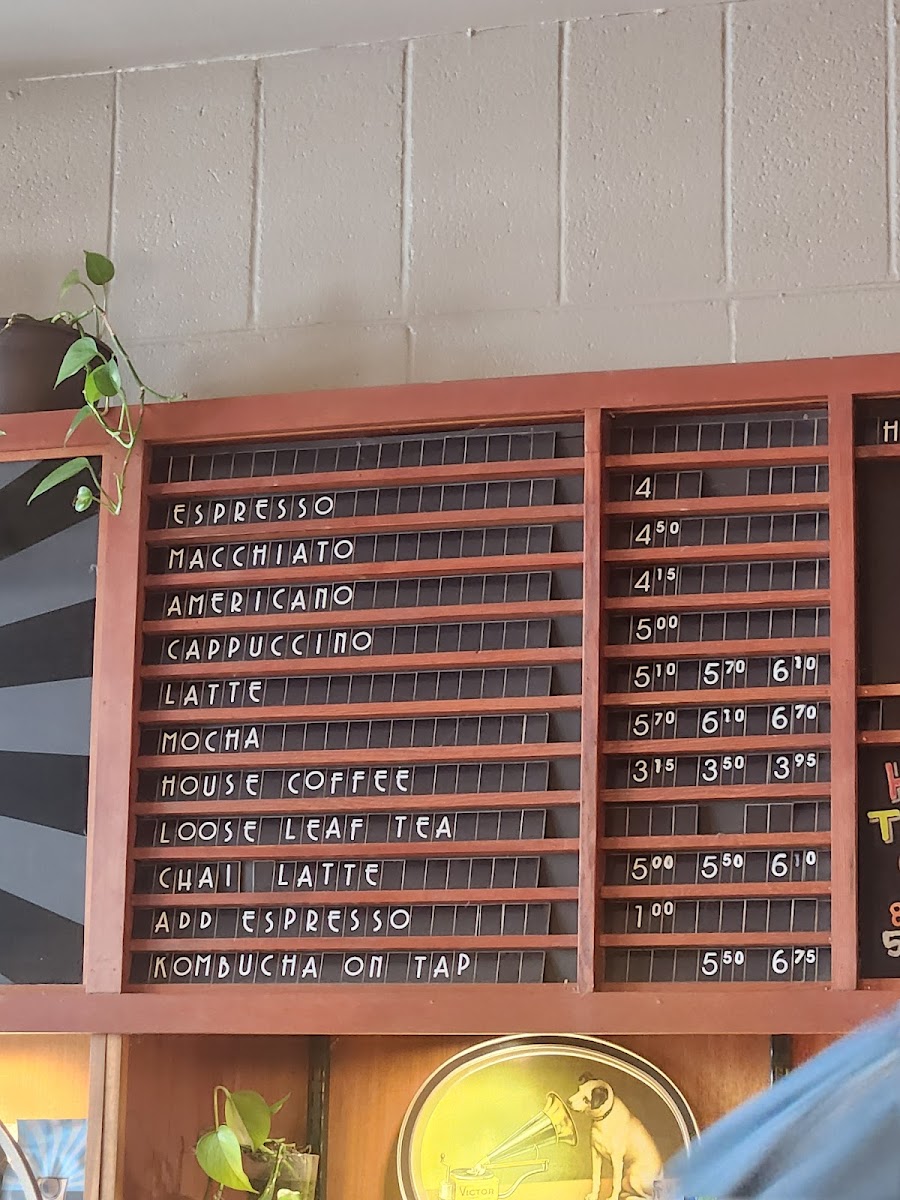 ESPRESSO 4
MACCHIATO 4⁵⁰
AMERICANO 4¹⁵
CAPPUCCINO 5⁰⁰
LATTE 5¹⁰ 5⁷⁰ 6³⁰
MOCHA 5⁷⁰ 6¹⁰ 6⁷⁰
HOUSE COFFEE 3¹⁵ 3⁵⁰ 3⁹⁵
LOOSE LEAF TEA
CHAI LATTE 5⁰⁰ 5⁵⁰ 6¹⁰
ADD ESPRESSO 1⁰⁰
KOMBUCHA ON TAP 5⁵⁰ 6⁷⁵
VICTOR